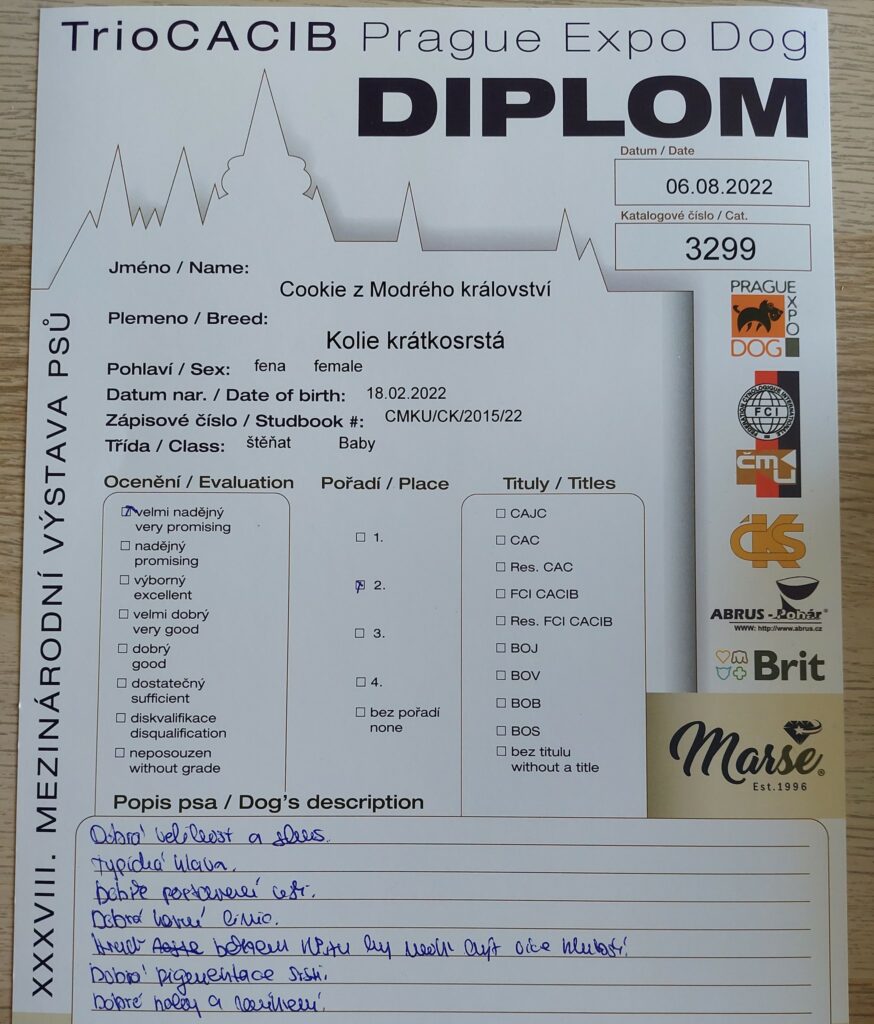 TrioCACIB Prague Expo Dog
DIPLOM
Datum / Date
06.08.2022
Katalogové číslo / Cat.
3299
XXXVIII. MEZINÁRODNÍ VÝSTAVA PSŮ
Jméno / Name:
Cookie z Modrého království
Plemeno / Breed:
Kolie krátkosrstá
Pohlaví / Sex: fena female
Datum nar. / Date of birth: 18.02.2022
Zápisové číslo / Studbook #: CMKU/CK/2015/22
Třída / Class: štěňat Baby
Ocenění / Evaluation
velmi nadějný
very promising
nadějný
promising
výborný
excellent
velmi dobrý
very good
dobrý
good
dostatečný
sufficient
diskvalifikace
disqualification
neposouzen
without grade
Pořadí / Place
1.
2.
3.
4.
bez pořadí
none
Tituly / Titles
CAJC
CAC
Res. CAC
FCI CACIB
Res. FCI CACIB
BOJ
BOV
BOB
BOS
bez titulu
without a title
PRAGUE
EXPO
DOG
FEDERATION CYNOLOGIQUE INTERNATIONALE
FCI
ČMKU
ČKS
ABRUS - Pohár®
WWW: http://www.abrus.cz
Brit
Marse®
Est.1996
Popis psa / Dog's description
Dobrá velikost a
Typická hlava.
Dobře postavené uši.
Dobrá horní linie.
během růstu by měl být více
Dobrá pigmentace srsti.
Dobré nohy a